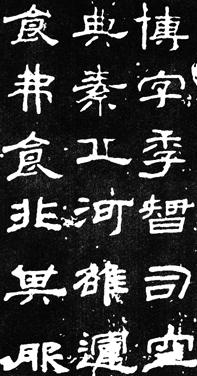 博字季智司空
典素工河雒運
食弗食非其服